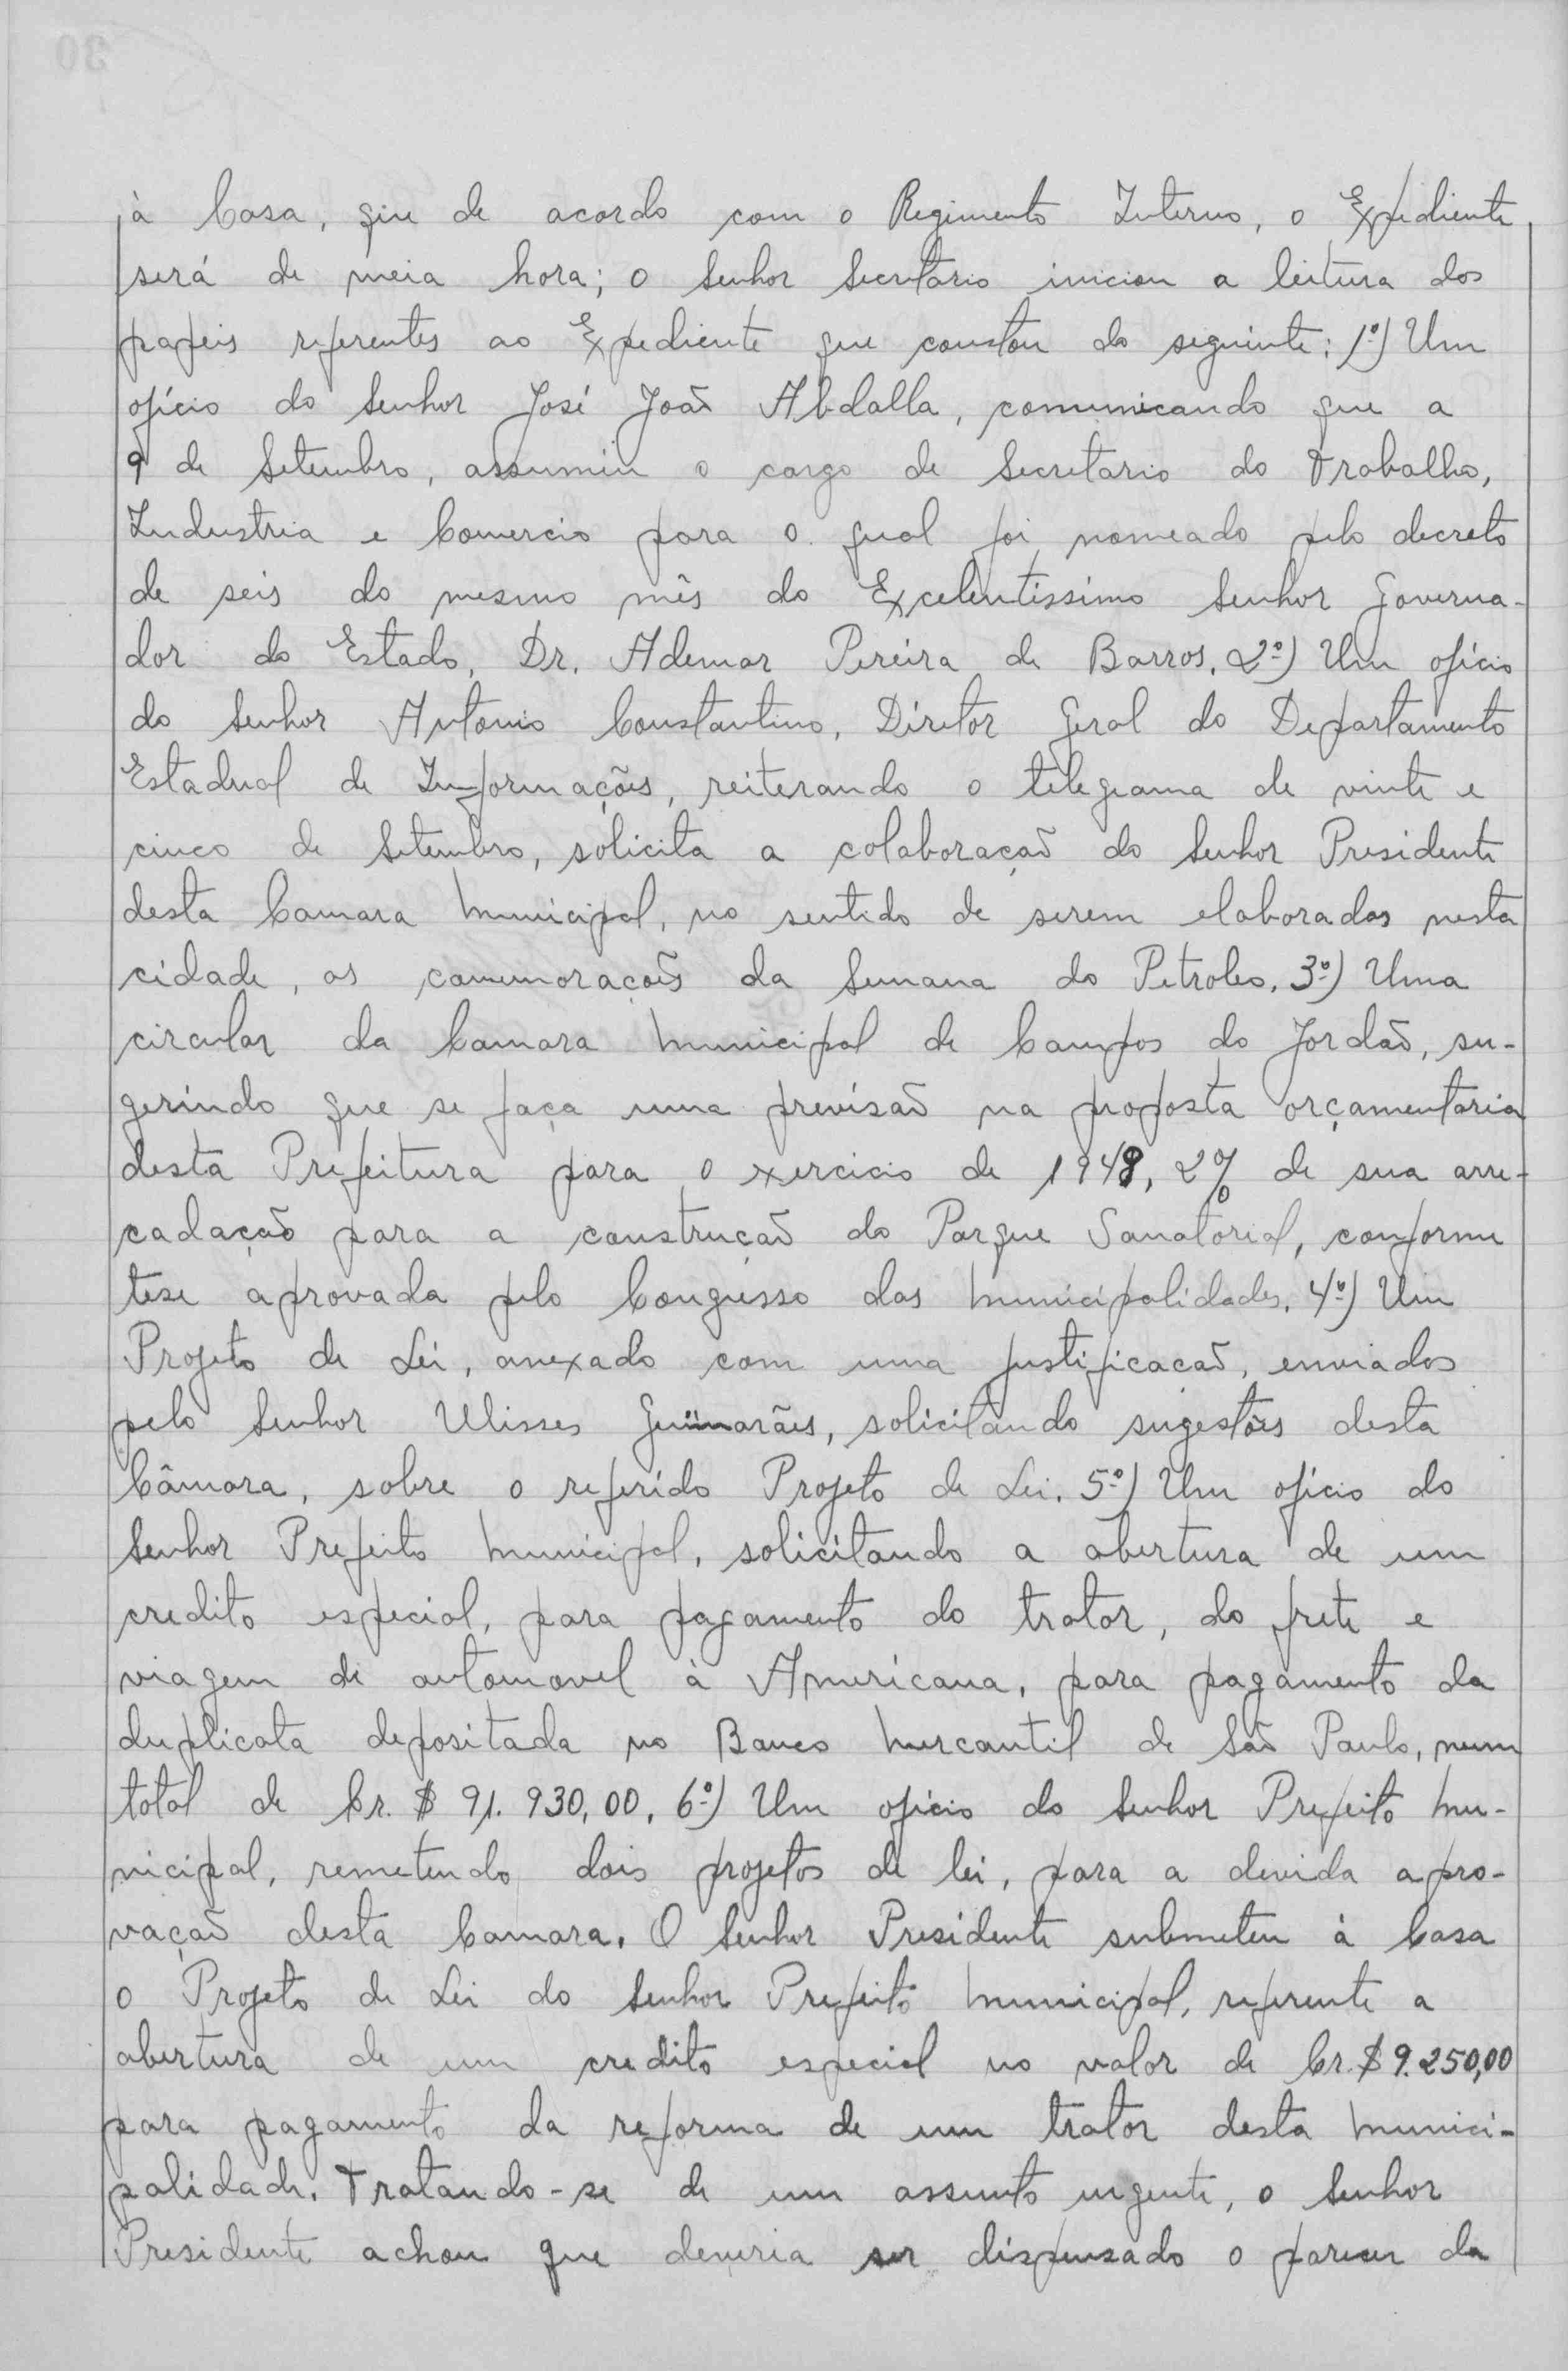 à Casa, que de acordo com o Regimento Interno, o Expediente
será de meia hora; o Senhor Secretario iniciou a leitura dos
papeis referentes ao Expediente que constou do seguinte: 1º) Um
ofício do Senhor José João Abdalla, comunicando que a
9 de Setembro, assumiu o cargo de Secretario do Trabalho,
Industria e Comercio para o qual foi nomeado pelo decreto
de seis do mesmo mês do Excelentissimo Senhor Governa-
dor do Estado, Dr. Ademar Pereira de Barros. 2º) Um ofício
do Senhor Antonio Constantino, Diretor Geral do Departamento
Estadual de Informações, reiterando o telegrama de vinte e
cinco de Setembro, solicita a colaboração do Senhor Presidente
desta Camara Municipal, no sentido de serem elaboradas nesta
cidade, as comemorações da Semana do Petroleo. 3º) Uma
circular da Camara Municipal de Campos do Jordão, su-
gerindo que se faça uma previsão na proposta orçamentaria
desta Prefeitura para o exercicio de 1948, 2% de sua arre-
cadação para a construção do Parque Sanatorial, conforme
tese aprovada pelo Congresso das Municipalidades. 4º) Um
Projeto de Lei, anexado com uma justificação, enviados
pelo Senhor Ulisses Guimarães, solicitando sugestões desta
Câmara, sobre o referido Projeto de Lei. 5º) Um ofício do
Senhor Prefeito Municipal, solicitando a abertura de um
credito especial, para pagamento do trator, do frete e
viagem de automovel à Americana, para pagamento da
duplicata depositada no Banco Mercantil de São Paulo, num
total de Cr. $ 91.930,00. 6º) Um ofício do Senhor Prefeito Mu-
nicipal, remetendo dois projetos de lei, para a devida apro-
vação desta Camara. O Senhor Presidente submeteu à Casa
o Projeto de Lei do Senhor Prefeito Municipal, referente a
abertura de um credito especial no valor de Cr. $ 9.250,00
para pagamento da reforma de um trator desta Munici-
palidade. Tratando-se de um assunto urgente, o Senhor
Presidente achou que deveria ser dispensado o parecer da